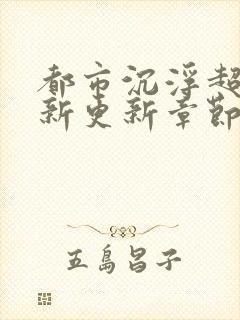 都市沉浮超
新更新章節
五島昌子